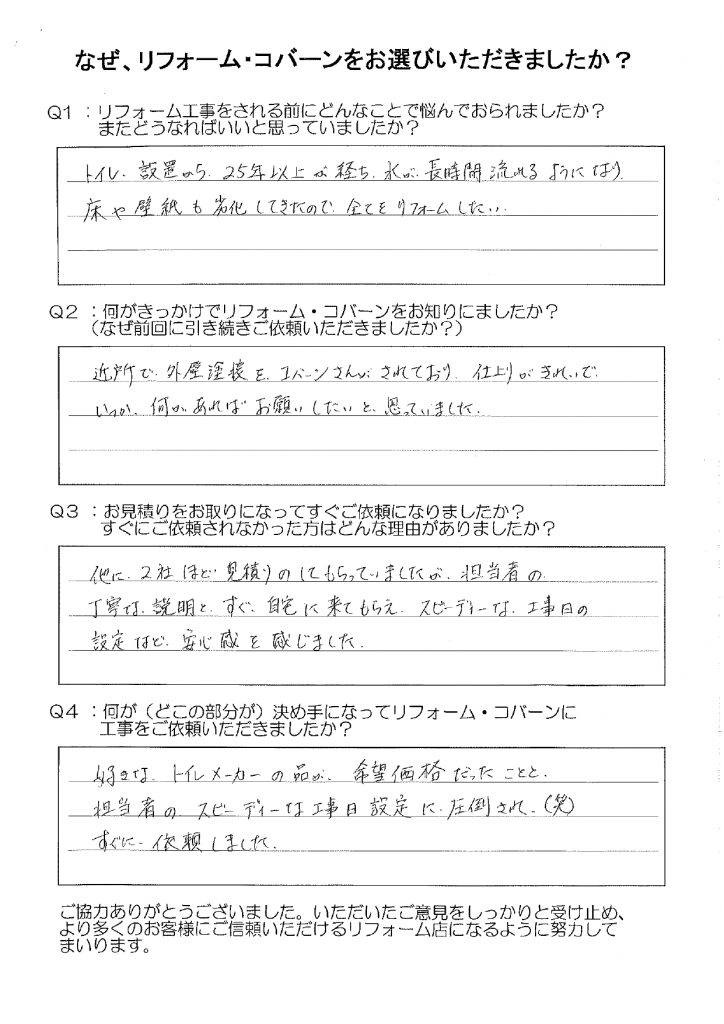 なぜ、リフォーム・コバーンをお選びいただきましたか？
Q1 ：リフォーム工事をされる前にどんなことで悩んでおられましたか？
またどうなればいいと思っていましたか？
トイレ、設置から、25年以上が経ち、水が、長時間流れるようになり、
床や壁紙も劣化してきたので、全てをリフォームしたい…
Q2 ：何がきっかけでリフォーム・コバーンをお知りにましたか？
（なぜ前回に引き続きご依頼いただきましたか？）
近所で、外壁塗装を、コバーンさんが、されており、仕上りがきれいで、
いつか、何かあればお願いしたいと、思っていました。
Q3 ：お見積りをお取りになってすぐご依頼になりましたか？
すぐにご依頼されなかった方はどんな理由がありましたか？
他に、2社ほど、見積りのしてもらっていましたが、担当者の
丁寧な、説明と、すぐ、自宅に来てもらえ、スピーディーな、工事日の
設定など、安心感を感じました。
Q4 ：何が（どこの部分が）決め手になってリフォーム・コバーンに
工事をご依頼いただきましたか？
好きな、トイレメーカーの品が、希望価格だったことと、
担当者のスピーディーな工事日設定に、圧倒され、(笑)
すぐに、依頼しました。
ご協力ありがとうございました。いただいたご意見をしっかりと受け止め、
より多くのお客様にご信頼いただけるリフォーム店になるように努力して
まいります。